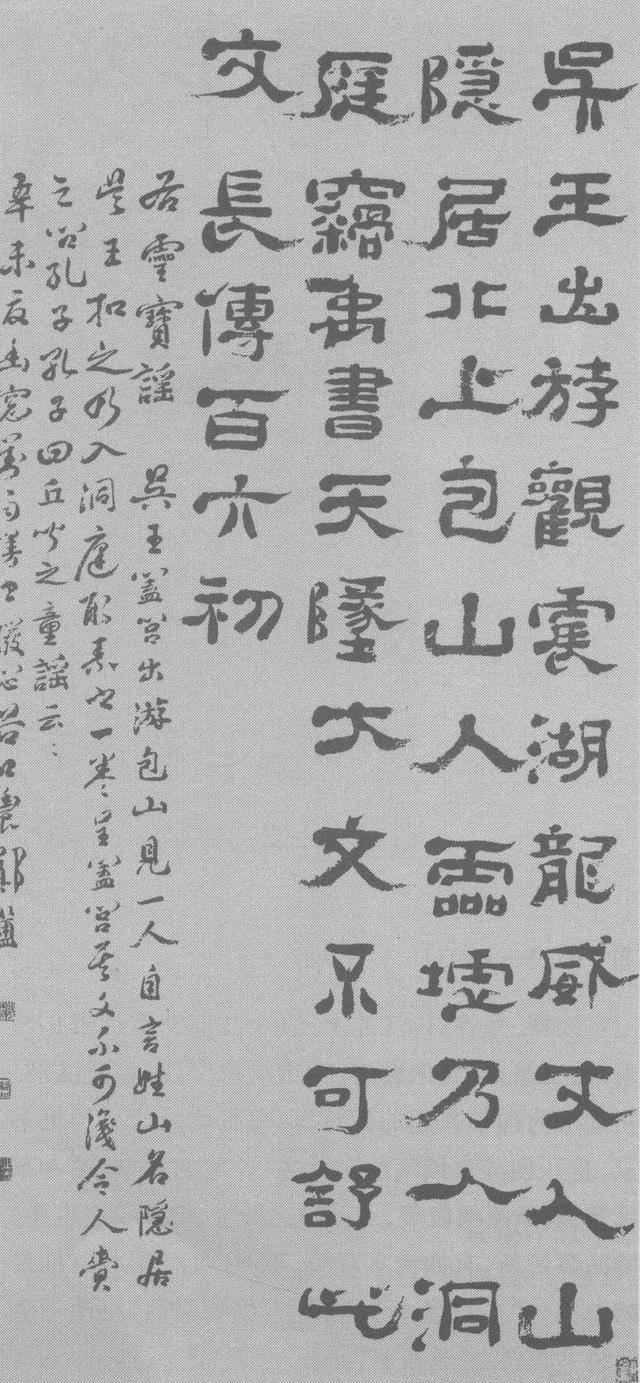 吳王出斿觀震湖龍威丈人山
隱居北上包山人靈墟乃入洞
庭竊禹書天墬大文不可舒此
文長傳百六初
右靈寶謠 吳王闔閭出游包山見一人自言姓山名隱居
吳王扣之乃入洞庭取素書一卷呈闔閭其文不可識令人賫
之問孔子孔子曰丘聞之童謠云〻
辛未夏 谷口農鄭簠